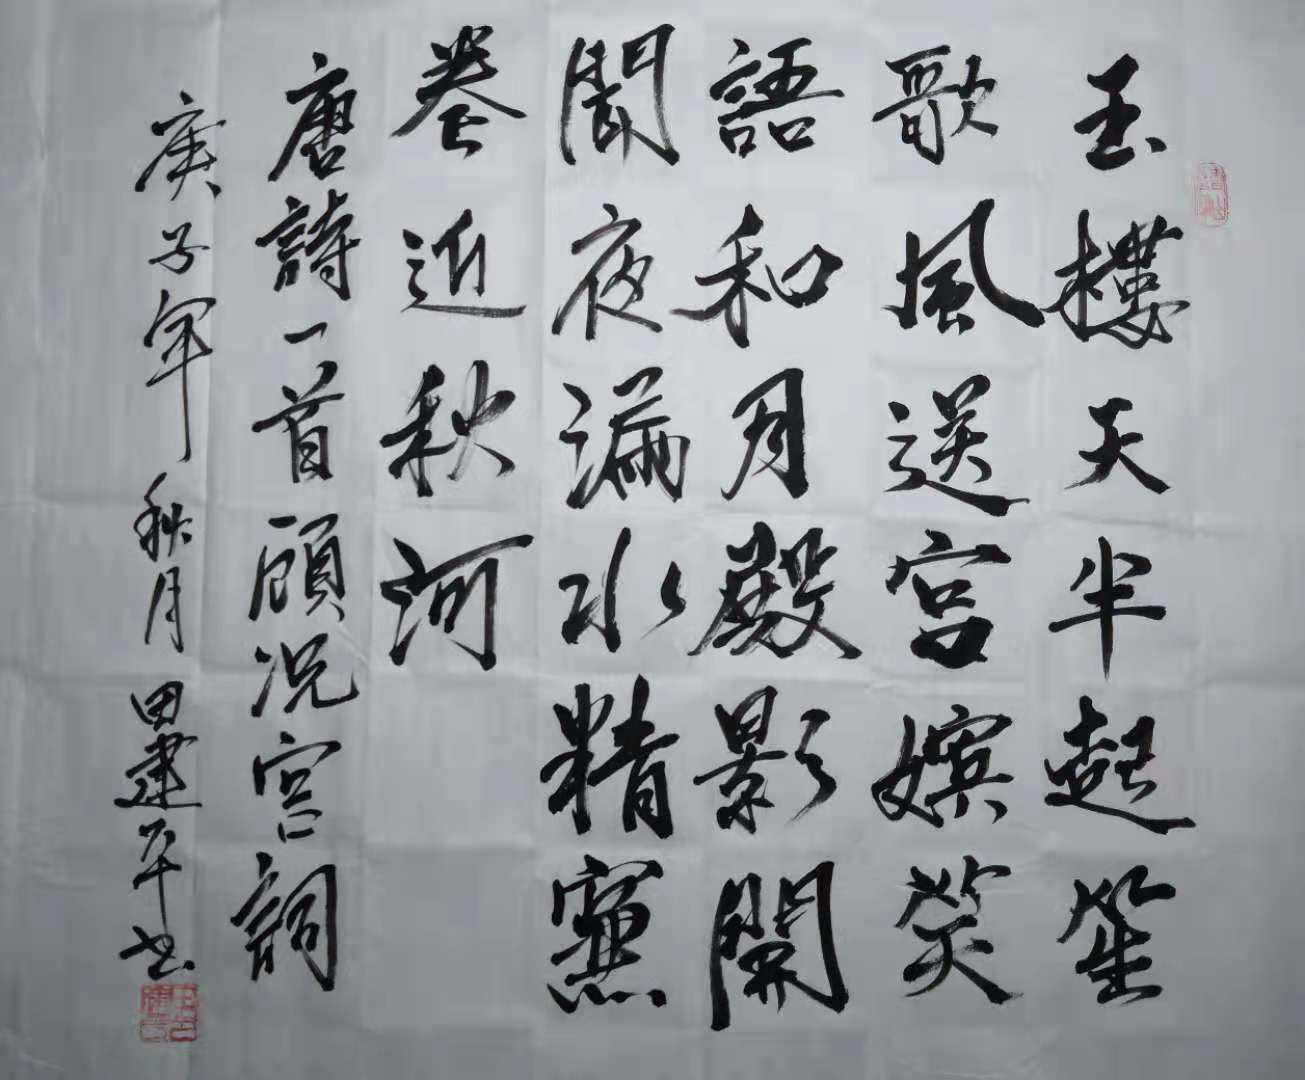 玉樓天半起笙
歌風送宮嬪笑
語和月殿影開
聞夜漏水精簾
卷近秋河
唐詩一首顧况宮詞
庚子年秋月田建平书